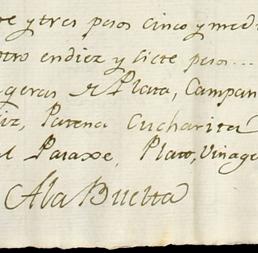 e y tres pesos cinco y med
otro en diez y siete pesos...
geras de Plata, Campan
iz, Patena Cucharita
al Paraxe, Plato, Vinage
A la Buelta